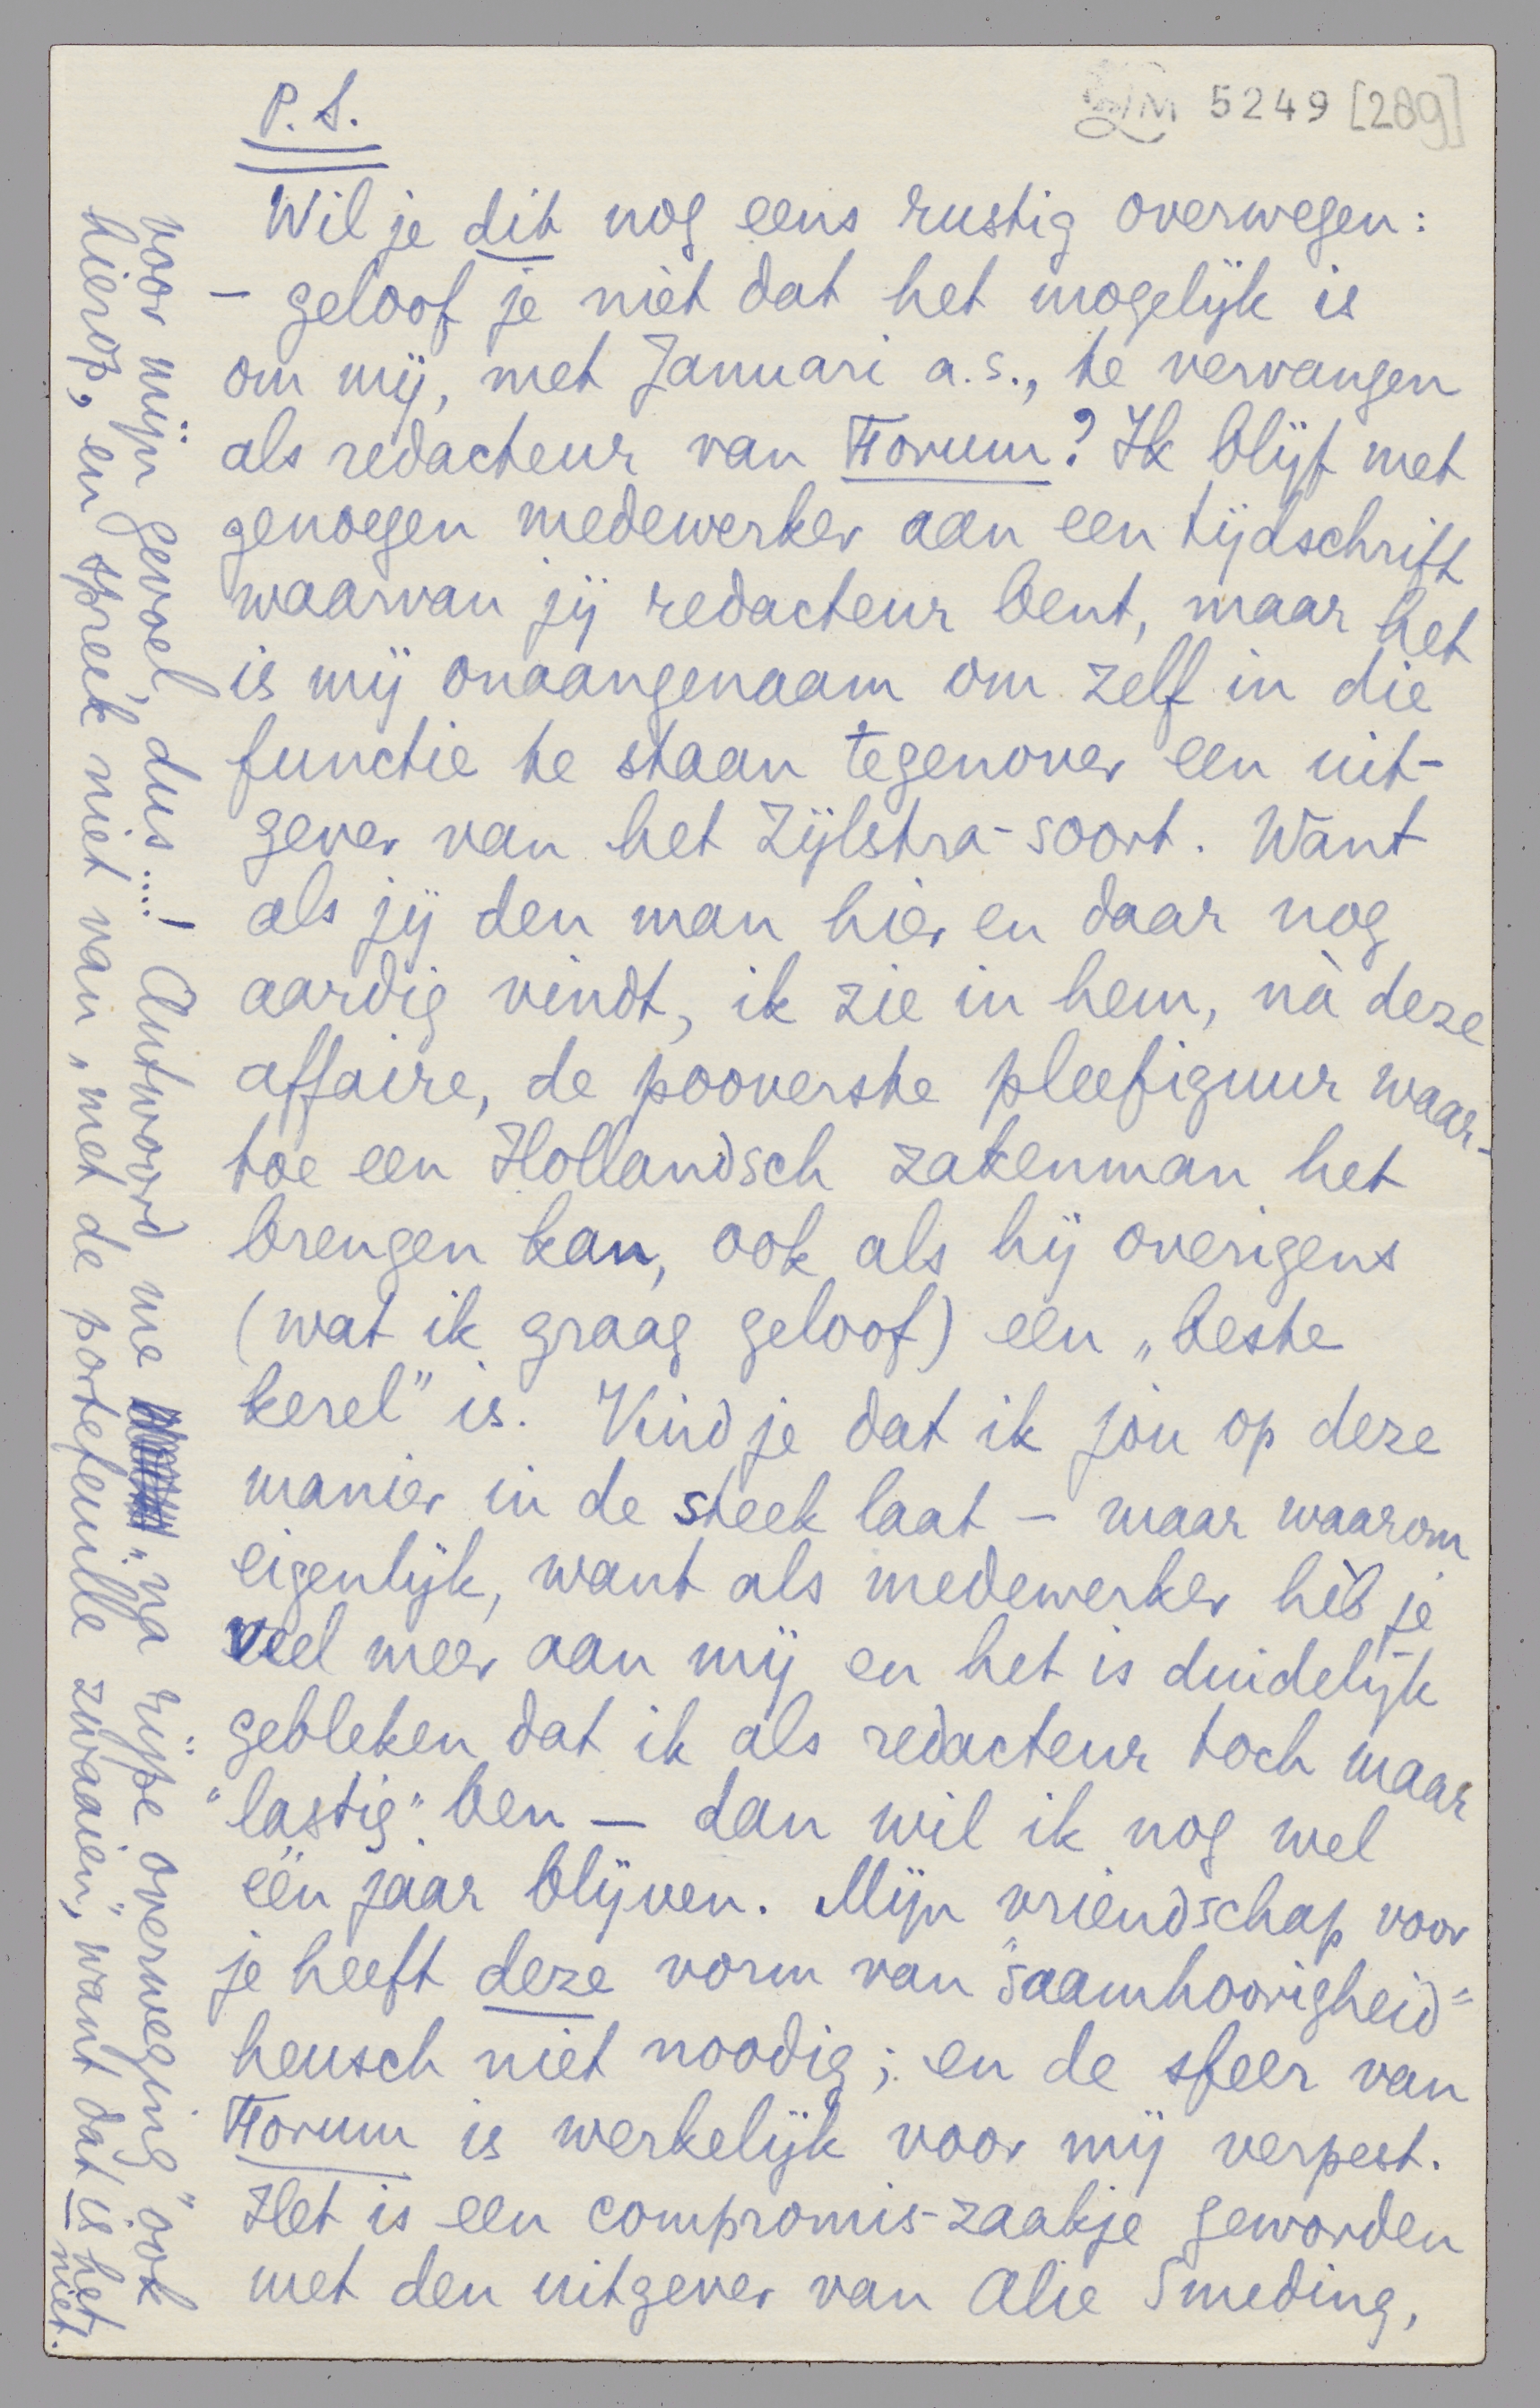 P.S.
5249 [289]
Wil je dit nog eens rustig overwegen:
– geloof je nièt dat het mogelijk is
om mij, met Januari a.s., te vervangen
als redacteur van Forum? Ik blijf met
genoegen medewerker aan een tijdschrift
waarvan jij redacteur bent, maar het
is mij onaangenaam om zelf in die
functie te staan tegenover een uit-
gever van het Zijlstra-soort. Want
als jij den man hier en daar nog
aardig vindt, ik zie in hem, nà deze
affaire, de pooverste pleefiguur waar-
toe een Hollandsch zakenman het
brengen kan, ook als hij overigens
(wat ik graag geloof) een „beste
kerel” is. Vind je dat ik jóu op deze
manier in de steek laat – maar waarom
eigenlijk, want als medewerker hèb je
veel meer aan mij en het is duidelijk
gebleken dat ik als redacteur toch maar
“lastig” ben – dan wil ik nog wel
één jaar blijven. Mijn vriendschap voor
je heeft deze vorm van “saamhoorigheid”
heusch niet noodig; en de sfeer van
Forum is werkelijk voor mij verpest.
Het is een compromis-zaakje geworden
met den uitgever van Alie Smeding,
voor mijn gevoel, dus....! Antwoord me „na rijpe overweging” ook
hierop, en spreek niet van „met de portefeuille zwaaien”, want dat is het
niet.